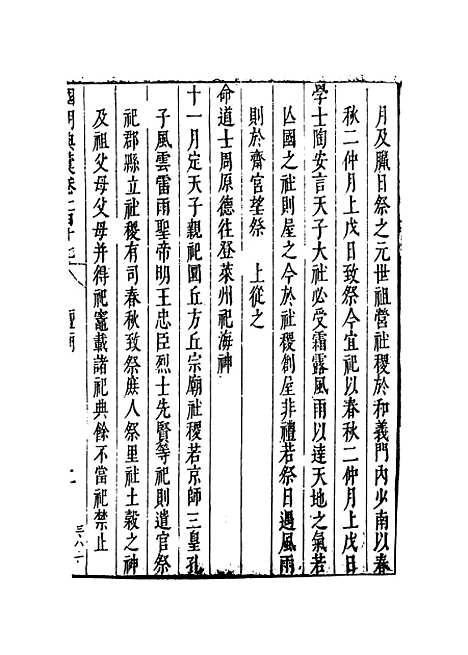 月及臘日祭之元世祖營社稷於和義門內少南以春
秋二仲月上戊日致祭今宜祀以春秋二仲月上戊日
學士陶安言天子大社必受霜露風雨以達天地之氣若
亾國之社則屋之今於社稷創屋非禮若祭日遇風雨
則於齋宮望祭　上從之
命道士周原德往登萊州祀海神
十一月定天子親祀圜丘方丘宗廟社稷若京師三皇孔
子風雲雷雨聖帝明王忠臣烈士先賢等祀則遣官祭
祀郡縣立社稷有司春秋致祭庶人祭里社土穀之神
及祖父母父母并得祀竈載諸祀典餘不當祀禁止
國朝典彙卷一百十七